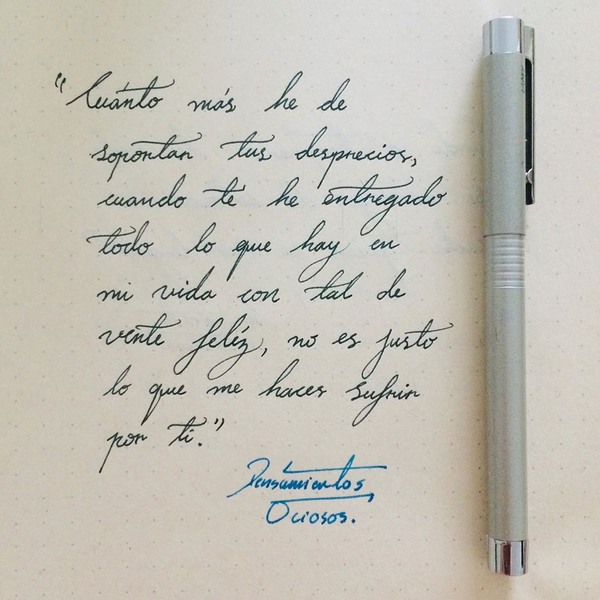 "Cuánto más he de
soportar tus desprecios,
cuando te he entregado
todo lo que hay en
mi vida con tal de
verte feliz, no es justo
lo que me haces sufrir
por ti."
Pensamientos
Ociosos.